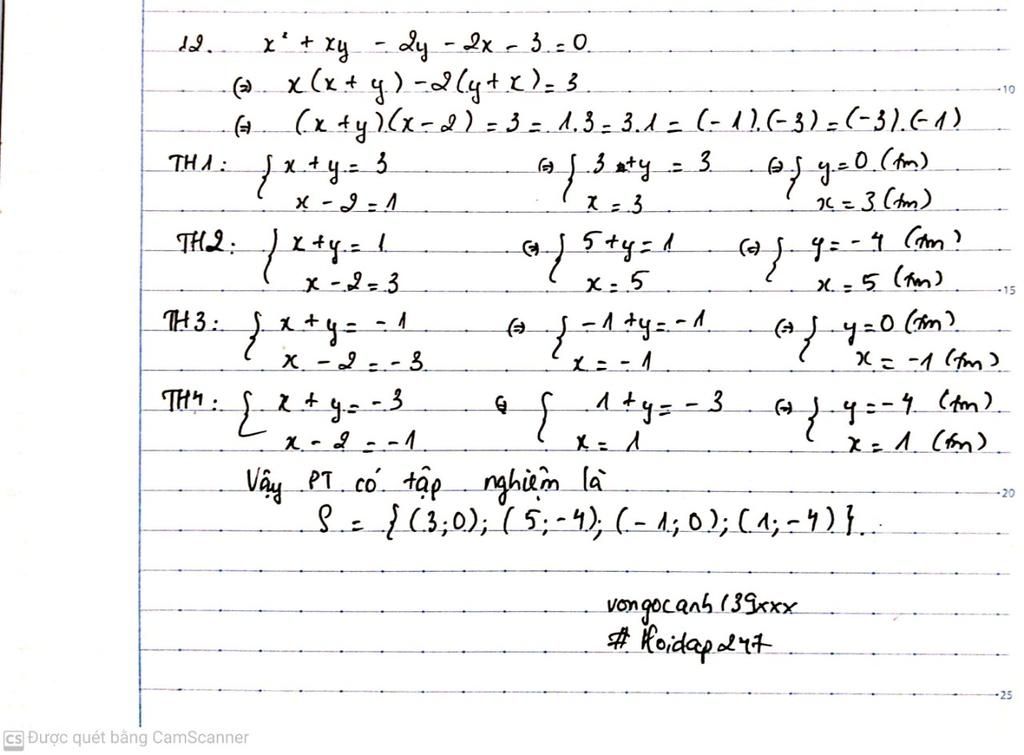 12. x² + xy - 2y - 2x - 3 = 0
(=) x(x + y) - 2(y + x) = 3
(=) (x + y)(x - 2) = 3 = 1.3 = 3.1 = (-1).(-3) = (-3).(-1)
TH1: { x + y = 3 (=) { 3 + y = 3 (=) { y = 0 (tm)
x - 2 = 1 x = 3 x = 3 (tm)
TH2: { x + y = 1 (=) { 5 + y = 1 (=) { y = -4 (tm)
x - 2 = 3 x = 5 x = 5 (tm)
TH3: { x + y = -1 (=) { -1 + y = -1 (=) { y = 0 (tm)
x - 2 = -3 x = -1 x = -1 (tm)
TH4: { x + y = -3 (=) { 1 + y = -3 (=) { y = -4 (tm)
x - 2 = -1 x = 1 x = 1 (tm)
Vậy PT có tập nghiệm là
S = {(3;0); (5;-4); (-1;0); (1;-4)}.
vongocanh139xxx
# Hoidap247
10
15
20
25
CS Được quét bằng CamScanner